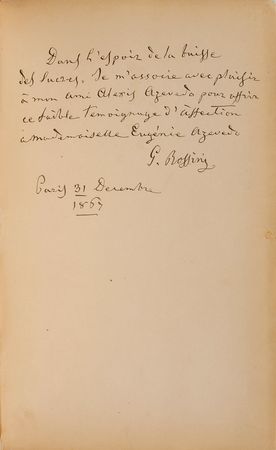 Dans l'espoir de la baisse
des sucres, Je m'associe avec plaisir
à mon ami Alexis Azevedo pour offrir
ce faible temoignage d'affection
a mademoiselle Eugénie Azevedo
G. Rossini
Paris 31 Decembre
1857